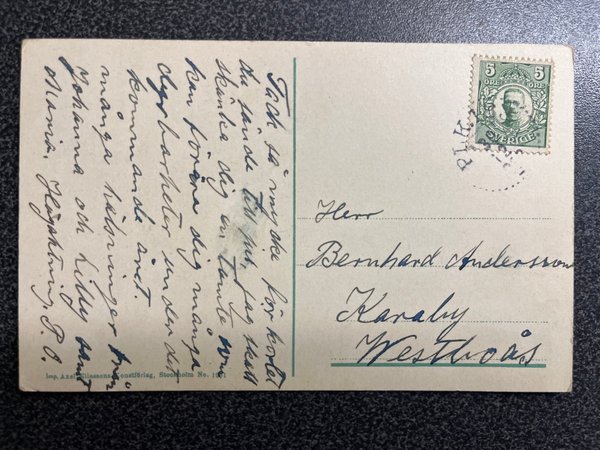 Tack så mycke för kortet
du sände till mig, jag skall
skänka dig en tomte som
kan förära dig många
dyrbarheter under det
kommande året.
många hälsninger från
Johanna och Lilly samt
Maria. Högaktning P. O.
5 5
ÖRE ÖRE
SVERIGE
Herr
Bernhard Andersson
Karaby
Westboås
Imp. Axel Eliassons Konstförlag, Stockholm No.